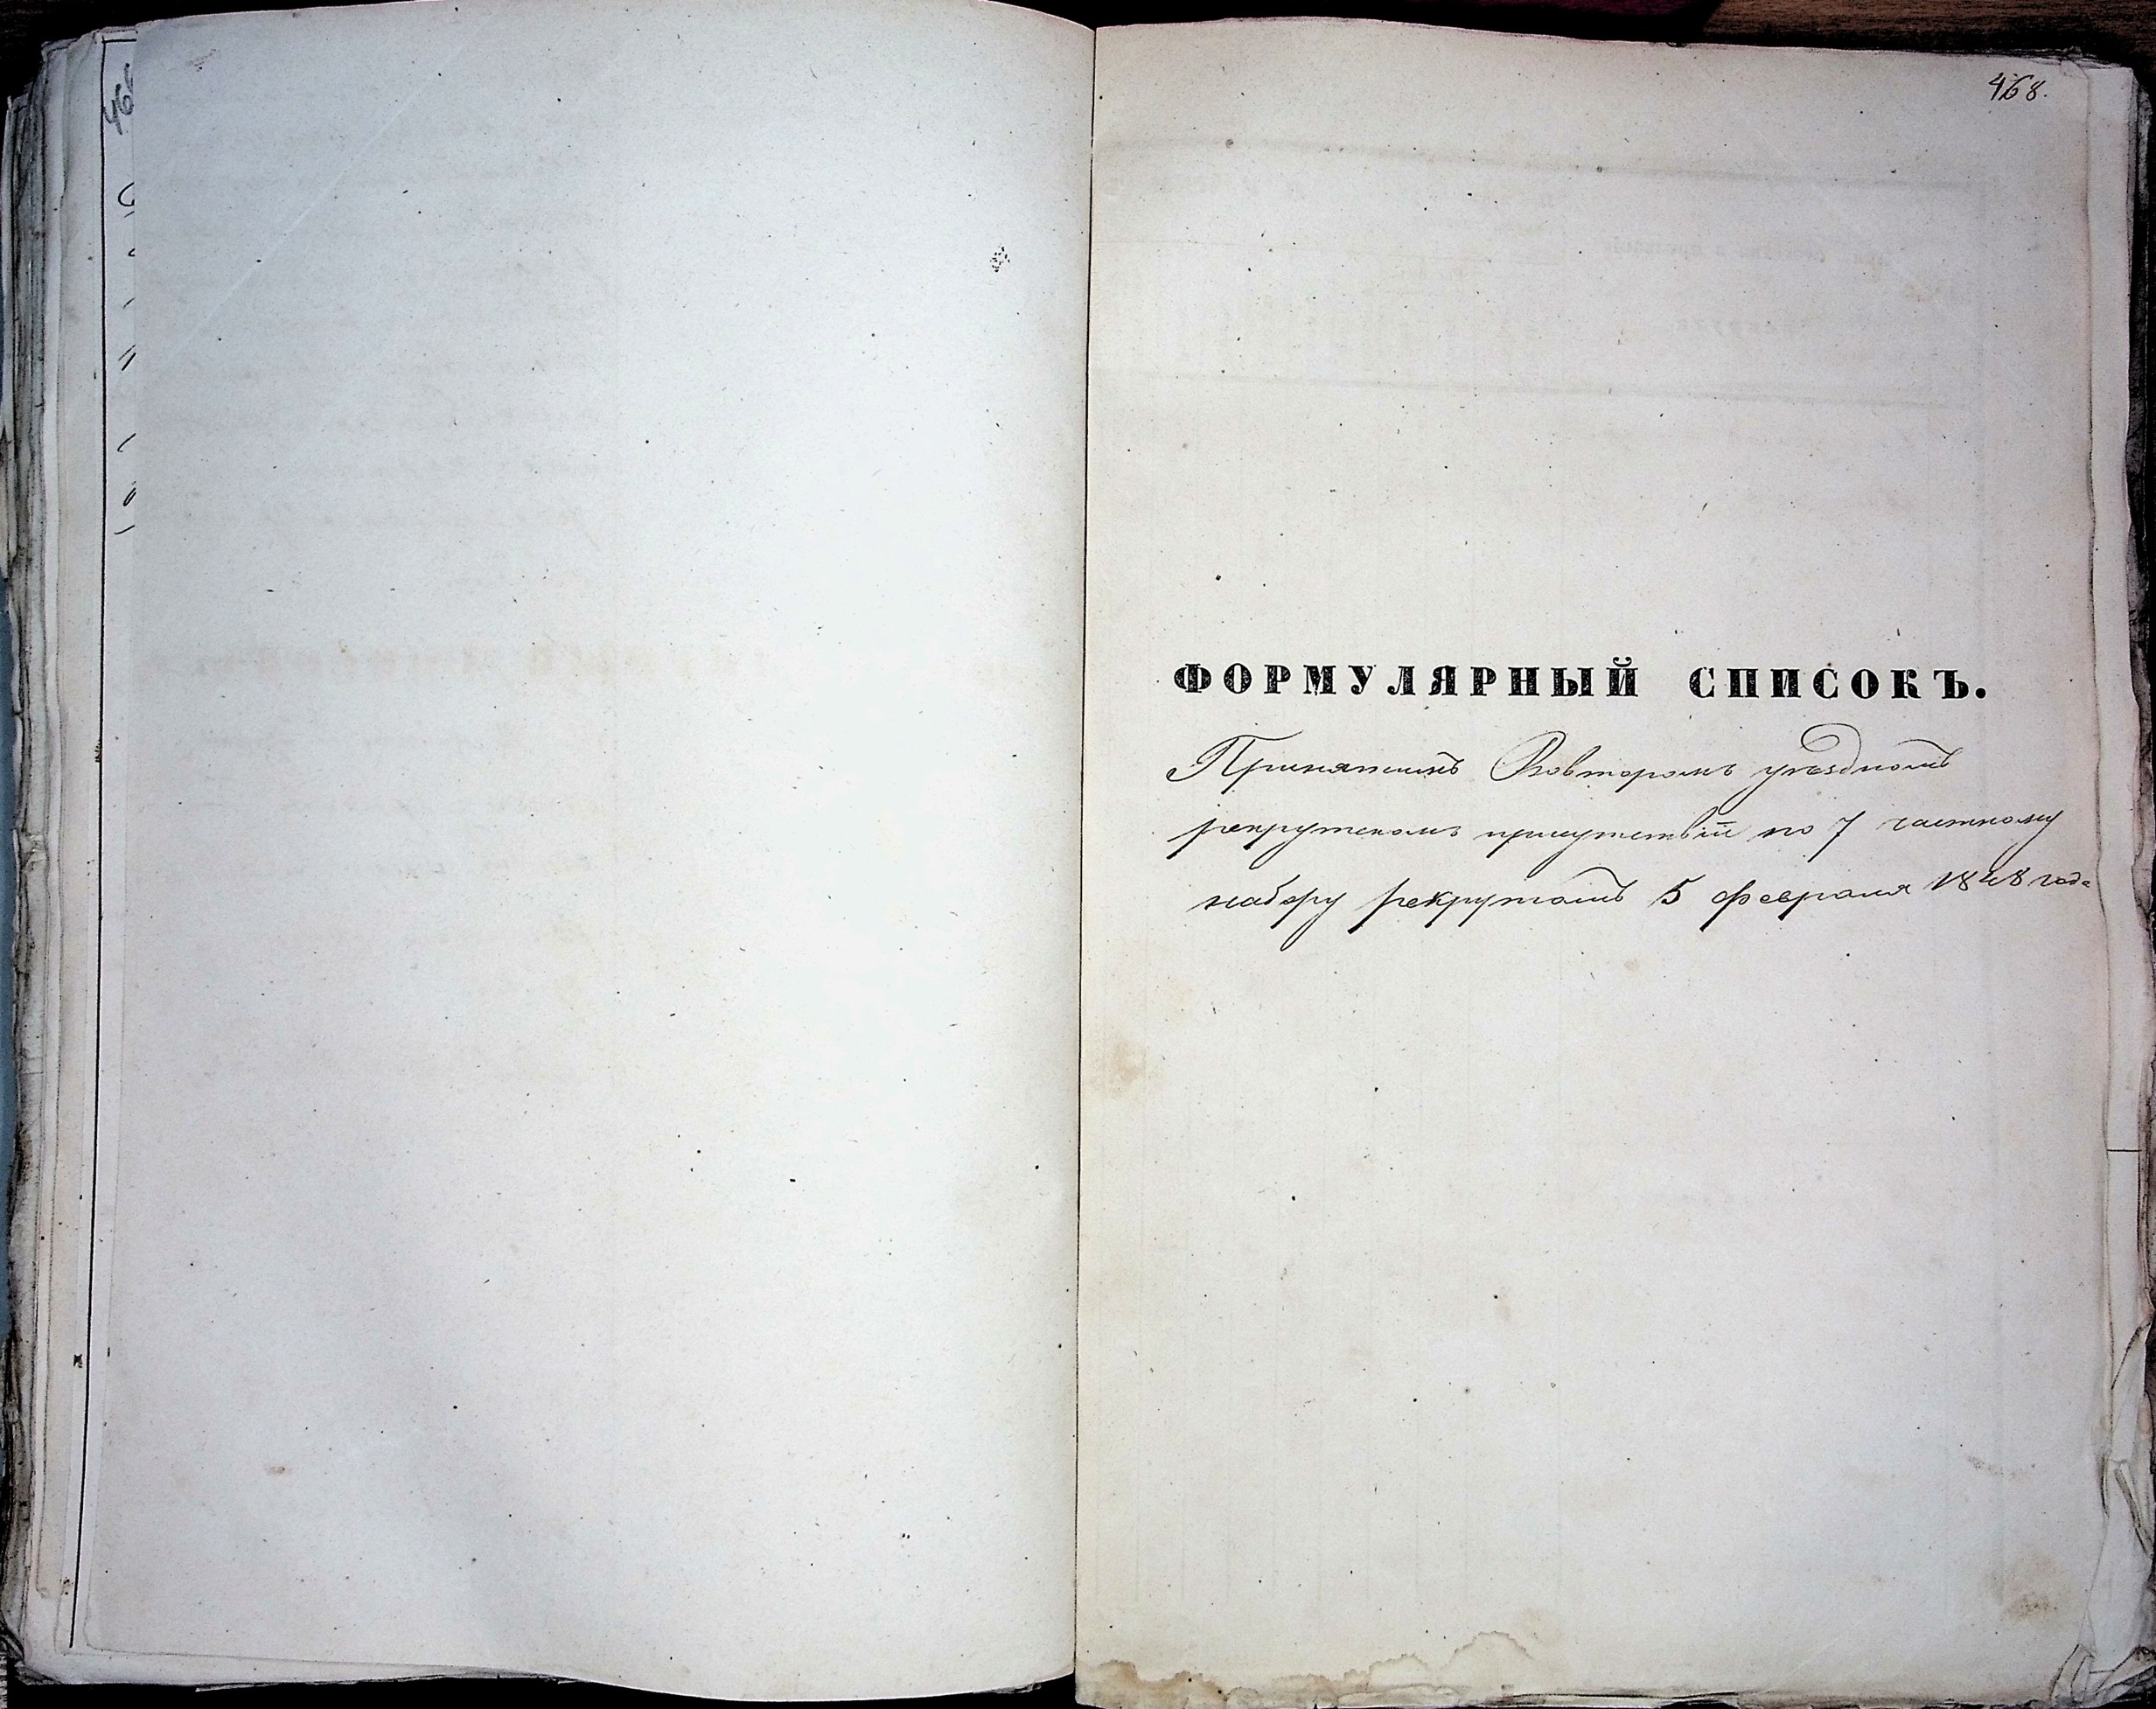 468.
ФОРМУЛЯРНЫЙ СПИСОКЪ.
Принятымъ Вовторомъ уѣздномъ
рекрутскомъ присутствіи по 7 частному
набору рекрутамъ 5 февраля 1848 года